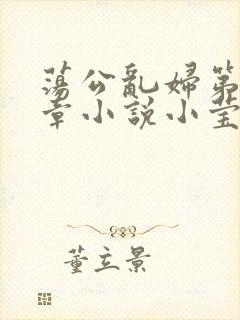 蕩公亂婦第
章小說小莹
董立景